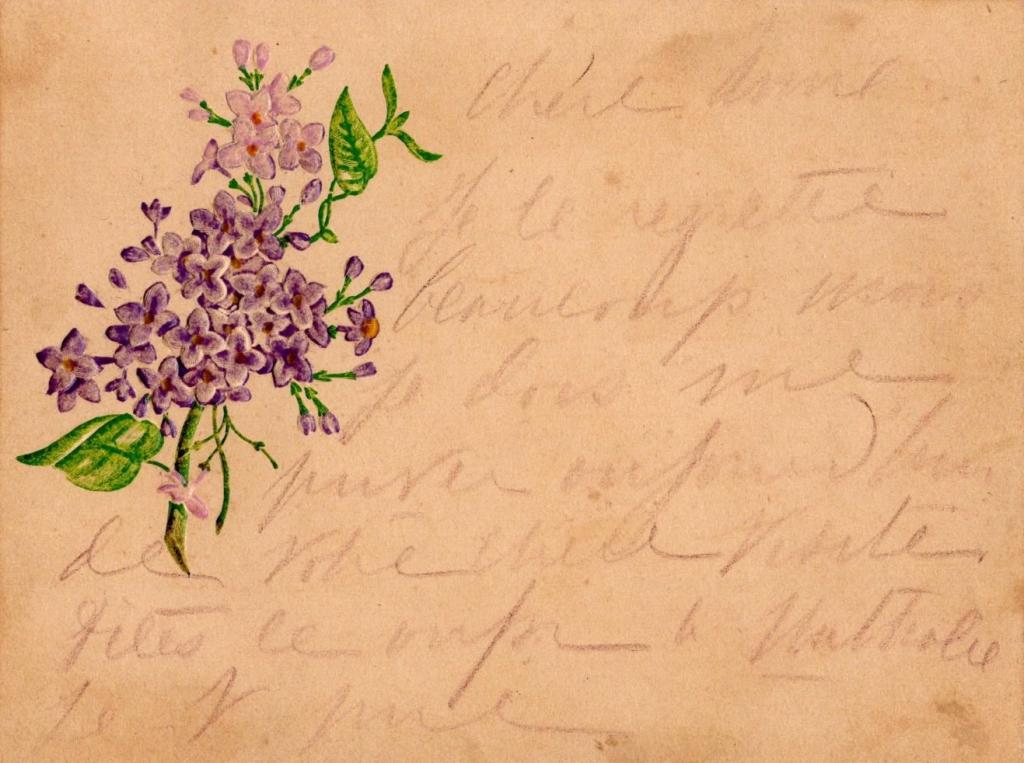 Chère Anne
Je le regrette
beaucoup mais
je dois me
priver aujourd'hui
de votre chère visite
Dites le aussi à Nathalie
Je V. prie